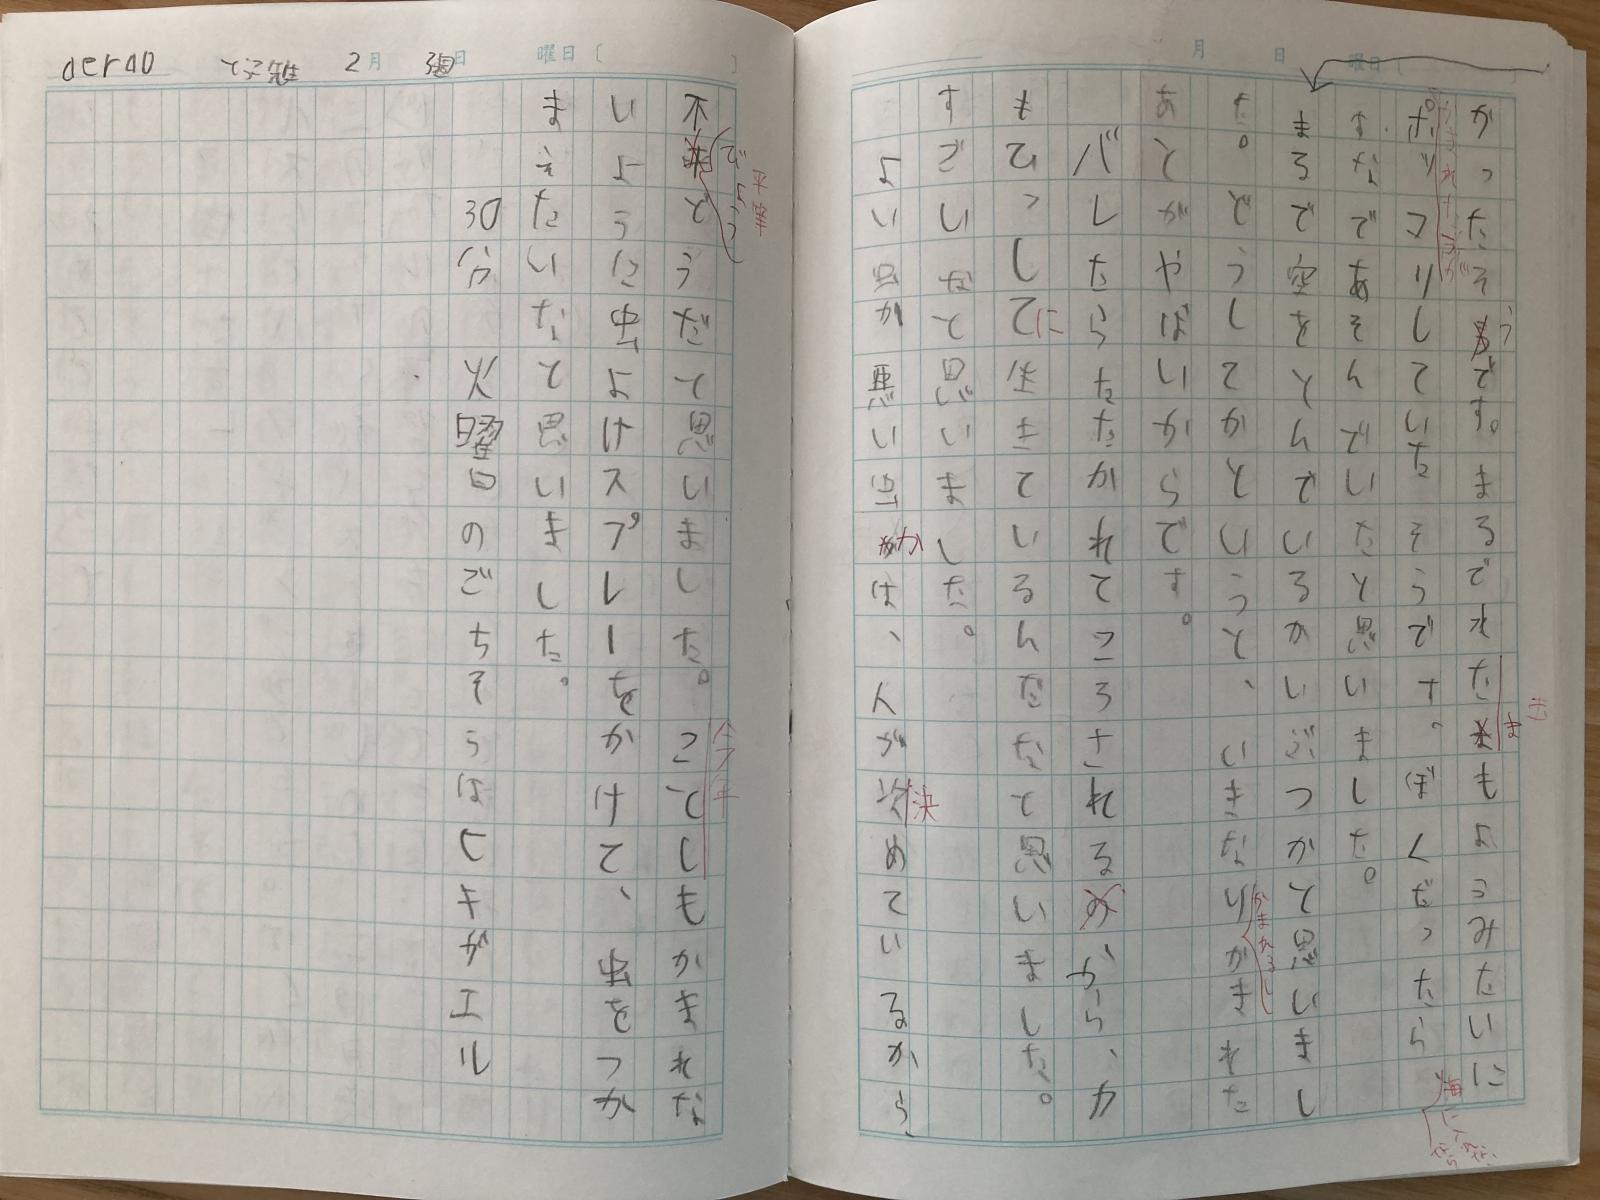 月 日 曜日
かったそうです。まるで水たまもようみたいに
していた そうです。ぼくだったら
すなであそんでいたと思いました。
まるで空をとんでいるかいぶつかと思いまし
た。どうしてかというと、いきなりがまれた
あとがやばいからです。
バレたらたたかれてころされるから、カ
もひっしてに生きているんだなと思いました。
すごいなと思いました。
よい虫か悪い虫かは、人が決めているから、
決
2月 3週日 曜日
平等
びょうどう
不 どうだと思いました。ことしもかまれな
今年
いように虫よけスプレーをかけて、虫をつか
まえたいなと思いました。
30分 火曜日のごちそうはヒキガエル